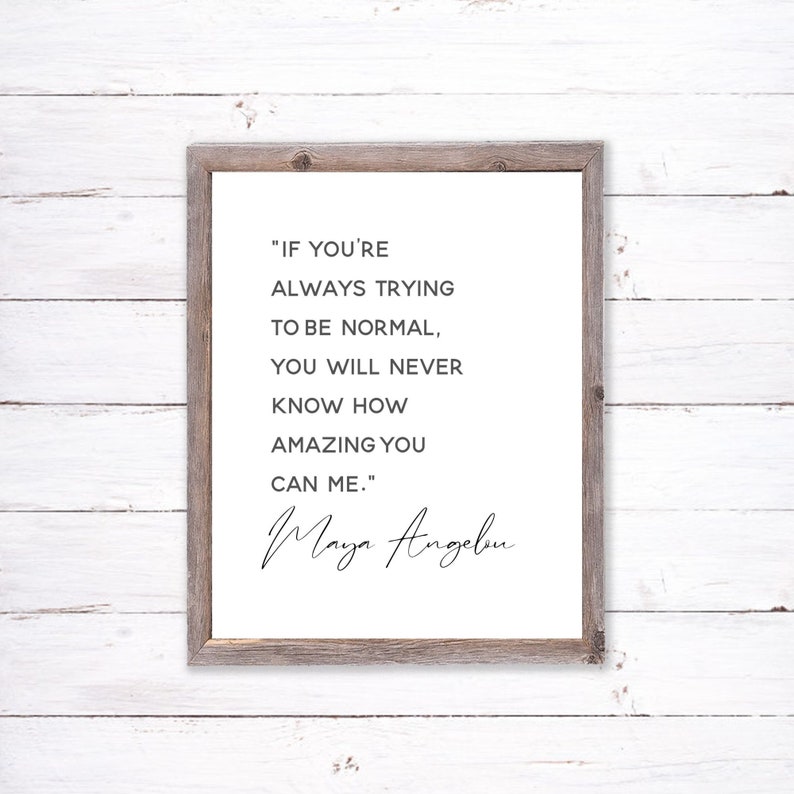 "IF YOU'RE
ALWAYS TRYING
TO BE NORMAL,
YOU WILL NEVER
KNOW HOW
AMAZING YOU
CAN ME."
Maya Angelou